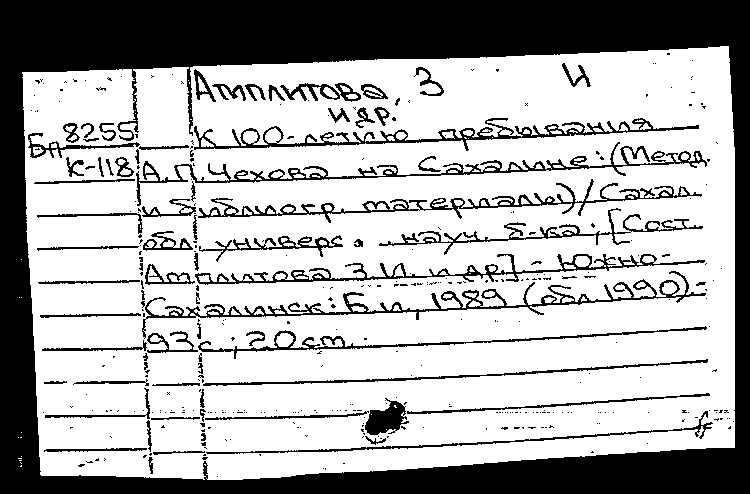 Амплитова, З И
и др.
Бп 8255 К 100-летию пребывания
К-118 А.П.Чехова на Сахалине: (Метод.
и библиогр. материалы)/Сахал.
обл. универс. науч. б-ка; [Сост.
Амплитова З.И. и др.] - Южно-
Сахалинск: Б.и., 1989 (обл.1990).-
93 с.; 20 cm.